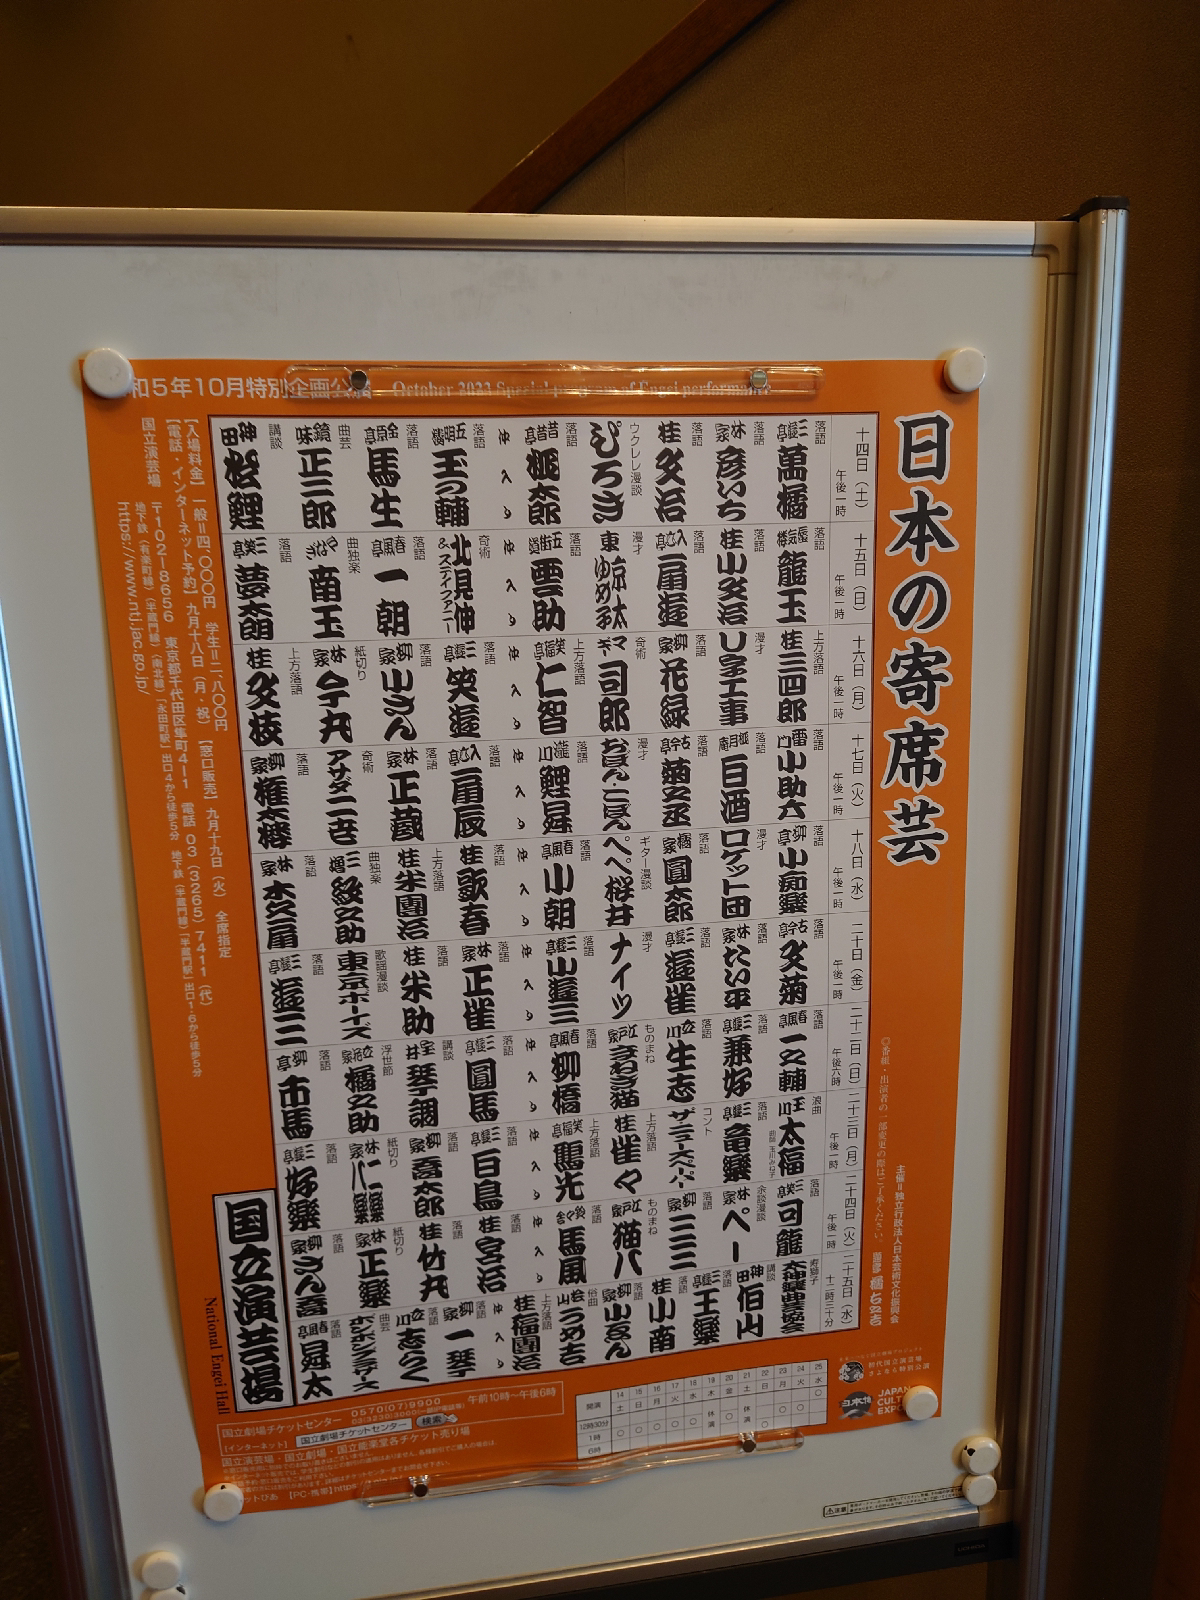 和5年10月特別企画公演 October 2023 Special program of Engei performance
日本の寄席芸
十四日（土） 午後一時
落語 三遊亭 萬橘
落語 林家 彦いち
落語 桂 文治
ウクレレ漫談 ぴろき
落語 昔昔亭 桃太郎
仲入り
落語 五明樓 玉の輔
落語 金原亭 馬生
曲芸 鏡味 正二郎
講談 神田 松鯉
十五日（日） 午後一時
落語 蜃気楼 龍玉
落語 桂 小文治
落語 入船亭 扇遊
漫才 東 京太・ゆめ子
落語 五街道 雲助
仲入り
奇術 北見伸&ステファニー
落語 春風亭 一朝
曲独楽 やなぎ 南玉
落語 三笑亭 夢太朗
十六日（月） 午後一時
上方落語 桂 三四郎
漫才 U字工事
落語 柳家 花緑
奇術 マギー 司郎
上方落語 笑福亭 仁智
仲入り
落語 三遊亭 笑遊
落語 柳家 小さん
紙切り 林家 今丸
上方落語 桂 文枝
十七日（火） 午後一時
落語 雷門 小助六
落語 桃月庵 白酒
落語 古今亭 菊之丞
漫才 おぼん・こぼん
落語 瀧川 鯉昇
仲入り
落語 入船亭 扇辰
落語 林家 正蔵
奇術 アサダ二世
落語 柳家 権太楼
十八日（水） 午後一時
落語 柳亭 小痴楽
漫才 ロケット団
落語 橘家 圓太郎
ギター漫談 ペペ桜井
落語 春風亭 小朝
仲入り
落語 桂 歌春
上方落語 桂 米團治
曲独楽 三増 紋之助
落語 林家 木久扇
二十日（金） 午後一時
落語 古今亭 文菊
落語 林家 たい平
落語 三遊亭 遊雀
漫才 ナイツ
落語 三遊亭 小遊三
仲入り
落語 林家 正雀
落語 桂 米助
歌謡漫談 東京ボーイズ
落語 三遊亭 遊三
二十二日（日） 午後六時
落語 春風亭 一之輔
落語 三遊亭 兼好
落語 立川 生志
ものまね 江戸家 まねき猫
落語 春風亭 柳橋
仲入り
落語 三遊亭 圓馬
講談 宝井 琴調
浮世節 立花家 橘之助
落語 柳亭 市馬
二十三日（月） 午後一時
浪曲 玉川 太福 曲師 玉川みね子
落語 三遊亭 竜楽
コント ザ・ニュースペーパー
上方落語 桂 雀々
上方落語 笑福亭 鶴光
仲入り
落語 三遊亭 白鳥
落語 柳家 喬太郎
紙切り 林家 八楽 二楽
落語 三遊亭 好楽
二十四日（火） 午後一時
落語 三笑亭 可龍
余談漫談 林家 ペー
落語 柳家 三三
ものまね 江戸家 猫八
落語 鈴々舎 馬風
仲入り
落語 桂 宮治
落語 桂 竹丸
紙切り 林家 正楽
落語 柳家 さん喬
二十五日（水） 十二時三十分
寿獅子 太神楽曲芸協会
講談 神田 伯山
落語 三遊亭 王楽
落語 桂 小南
落語 柳家 小さん
俗曲 桧山 うめ吉
上方落語 桂 福團治
仲入り
落語 柳家 一琴
落語 立川 志らく
曲芸 ボンボンブラザース
落語 春風亭 昇太
〇番組・出演者の一部変更の際はご了承ください。
主催＝独立行政法人日本芸術文化振興会
【入場料金】一般＝四、〇〇〇円 学生＝二、八〇〇円
【電話・インターネット予約】九月十八日（月・祝）【窓口販売】九月十九日（火） 全席指定
国立演芸場 〒102-8656 東京都千代田区隼町4-1 電話 03（3265）7411（代）
地下鉄（有楽町線）（半蔵門線）（南北線）「永田町駅」出口4から徒歩5分 地下鉄（半蔵門線）「半蔵門駅」出口1・6から徒歩5分
https://www.ntj.jac.go.jp/
国立演芸場
National Engei Hall
国立劇場チケットセンター 0570(07)9900 午前10時〜午後6時
03(3230)3000
［インターネット］ 国立劇場チケットセンター 検索
国立演芸場・国立劇場・国立能楽堂各チケット売り場
【PC・携帯】
開演 14土 15日 16月 17火 18水 19木 20金 21土 22日 23月 24火 25水
12時30分 〇
1時 〇 〇 〇 〇 〇 休演 〇 休演 〇 〇
6時 〇
初代国立演芸場
さよなら特別公演
日本博
JAPAN
CULTU
EXPO